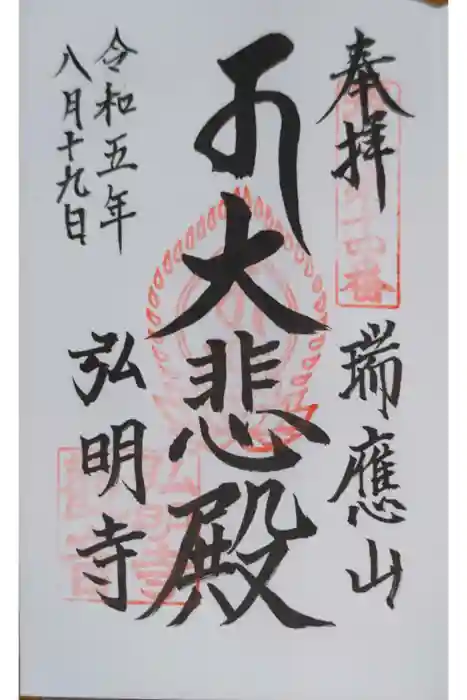 奉拝
十四番
瑞應山
大悲殿
弘明寺
令和五年
八月十九日